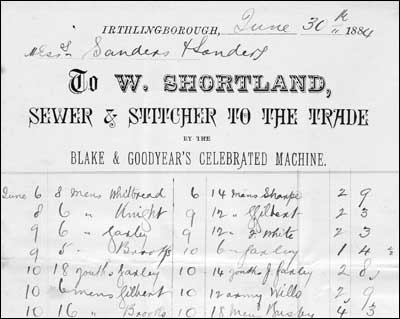 IRTHLINGBOROUGH, June 30th 1884
Messrs Sanders & Sanders
To W. SHORTLAND,
SEWER & STITCHER TO THE TRADE
BY THE
BLAKE & GOODYEAR'S CELEBRATED MACHINE.
June 6 8 mens Whitbread 6 14 mens Sharpe 2 9
8 6 " Knight 9 12 " Gilbert 2 3
9 6 " Laxley 9 12 " White 2 3
9 5 " Brooks 10 6 " Laxley 1 4
10 18 youths Laxley 10 14 youths J. Laxley 2 8
10 6 mens Gilbert 10 12 army Wills 2 9
10 16 " Brooks 10 18 Men 4 3